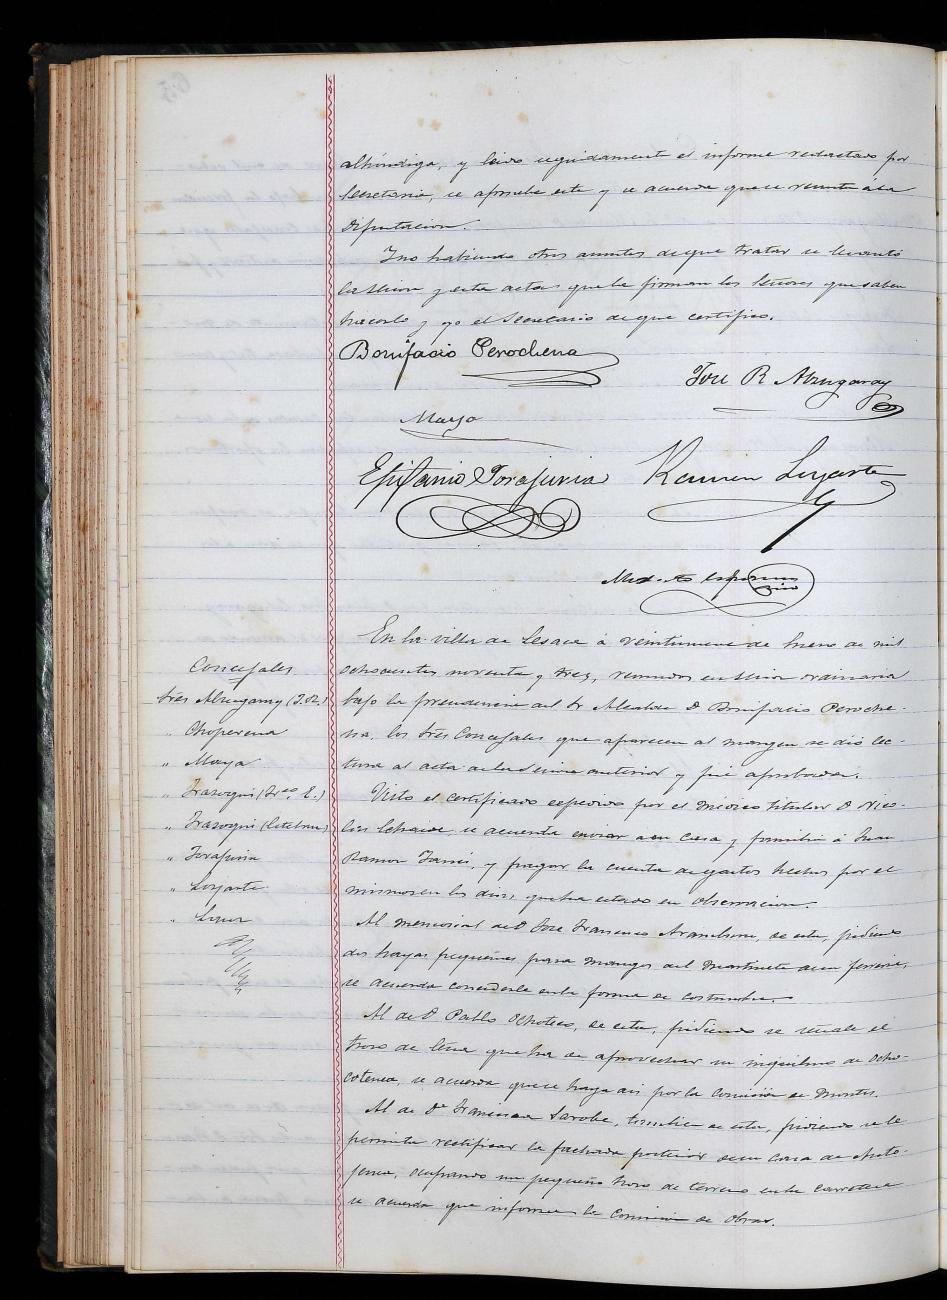 alhóndiga, y leido seguidamente el informe redactado por
Secretaria, se aprueba este y se acuerda que se remita á la
Diputacion.
Y no habiendo otros asuntos de que tratar se levantó
la sesion y esta acta que la firman los Señores que saben
hacerlo y yo el Secretario de que certifico.
Bonifacio Perochena
José R Alzugaray
Maya
Epifanio Torajuria
Ramon Loyarte
En la villa de Lesaca á veintinueve de Enero de mil
ochocientos noventa y tres, reunidos en sesion ordinaria
bajo la presidencia del Sr Alcalde D Bonifacio Peroche-
na, los Sres Concejales que aparecen al margen se dió lec-
tura al acta de la sesion anterior y fué aprobada.
Concejales
Sres Alzugaray (J.R.)
" Choperena
" Maya
" Irazoqui (Frco. E.)
" Irazoqui (Esteban)
" Torajuria
" Loyarte
Visto el certificado expedido por el médico titular D Nico-
lás se acuerda enviar a su casa y familia á Juan
Ramon y pagar la cuenta de gastos hechos por el
mismo en los dias que ha estado en observacion.
Al memorial de D José Francisco Aramburu, de esta, pidiendo
dos hayas pequeñas para mangos del martinete de su ferreria,
se acuerda concederla en la forma de costumbre.
Al de D Pablo Ochoteco, de esta, pidiendo se señale el
trozo de leña que ha de aprovechar su inquilino de Ocho-
cotenea, se acuerda que se haga asi por la Comision de Montes.
Al de Dª Francisca Sarobe, tambien de esta, pidiendo se le
permita rectificar la fachada posterior de su casa de
ocupando un pequeño trozo de terreno en la carretera
se acuerda que informe la Comision de obras.